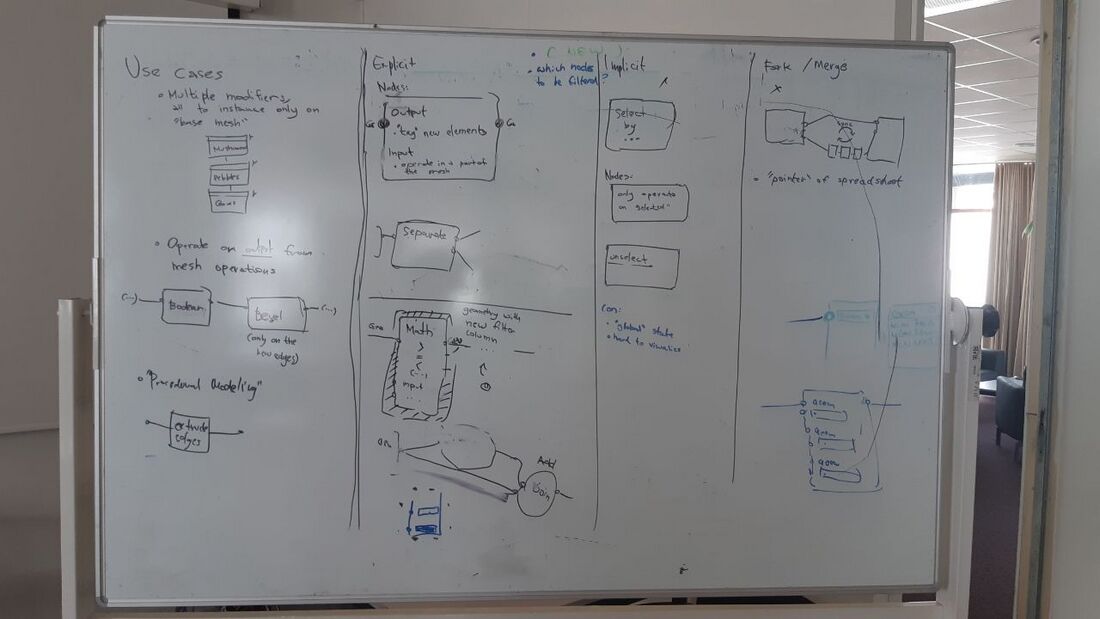 USE CASES
• Multiple modifiers,
all to instance only on
"base mesh"
Mushroom
Pebbles
Grass
• Operate on output from
mesh operations
(...)
Boolean
Bevel
(...)
(only on the
new edges)
• "Procedural Modeling"
extrude
edges
Explicit
Nodes:
Output
• "tag" new elements
Input
• operate in a part of
the mesh
Geo
Separate
geometry with
new filter
column
...
Geo
Math
>
=
<
input
Geo
Add
Join
• which nodes
to be filtered?
Implicit
x
Select
by
...
Nodes:
only operate
on selected"
unselect
Con:
• "global" state
• hard to visualize
Fork / Merge
x
sync
• "pointer" of spreadsheet
geom
geom
geom